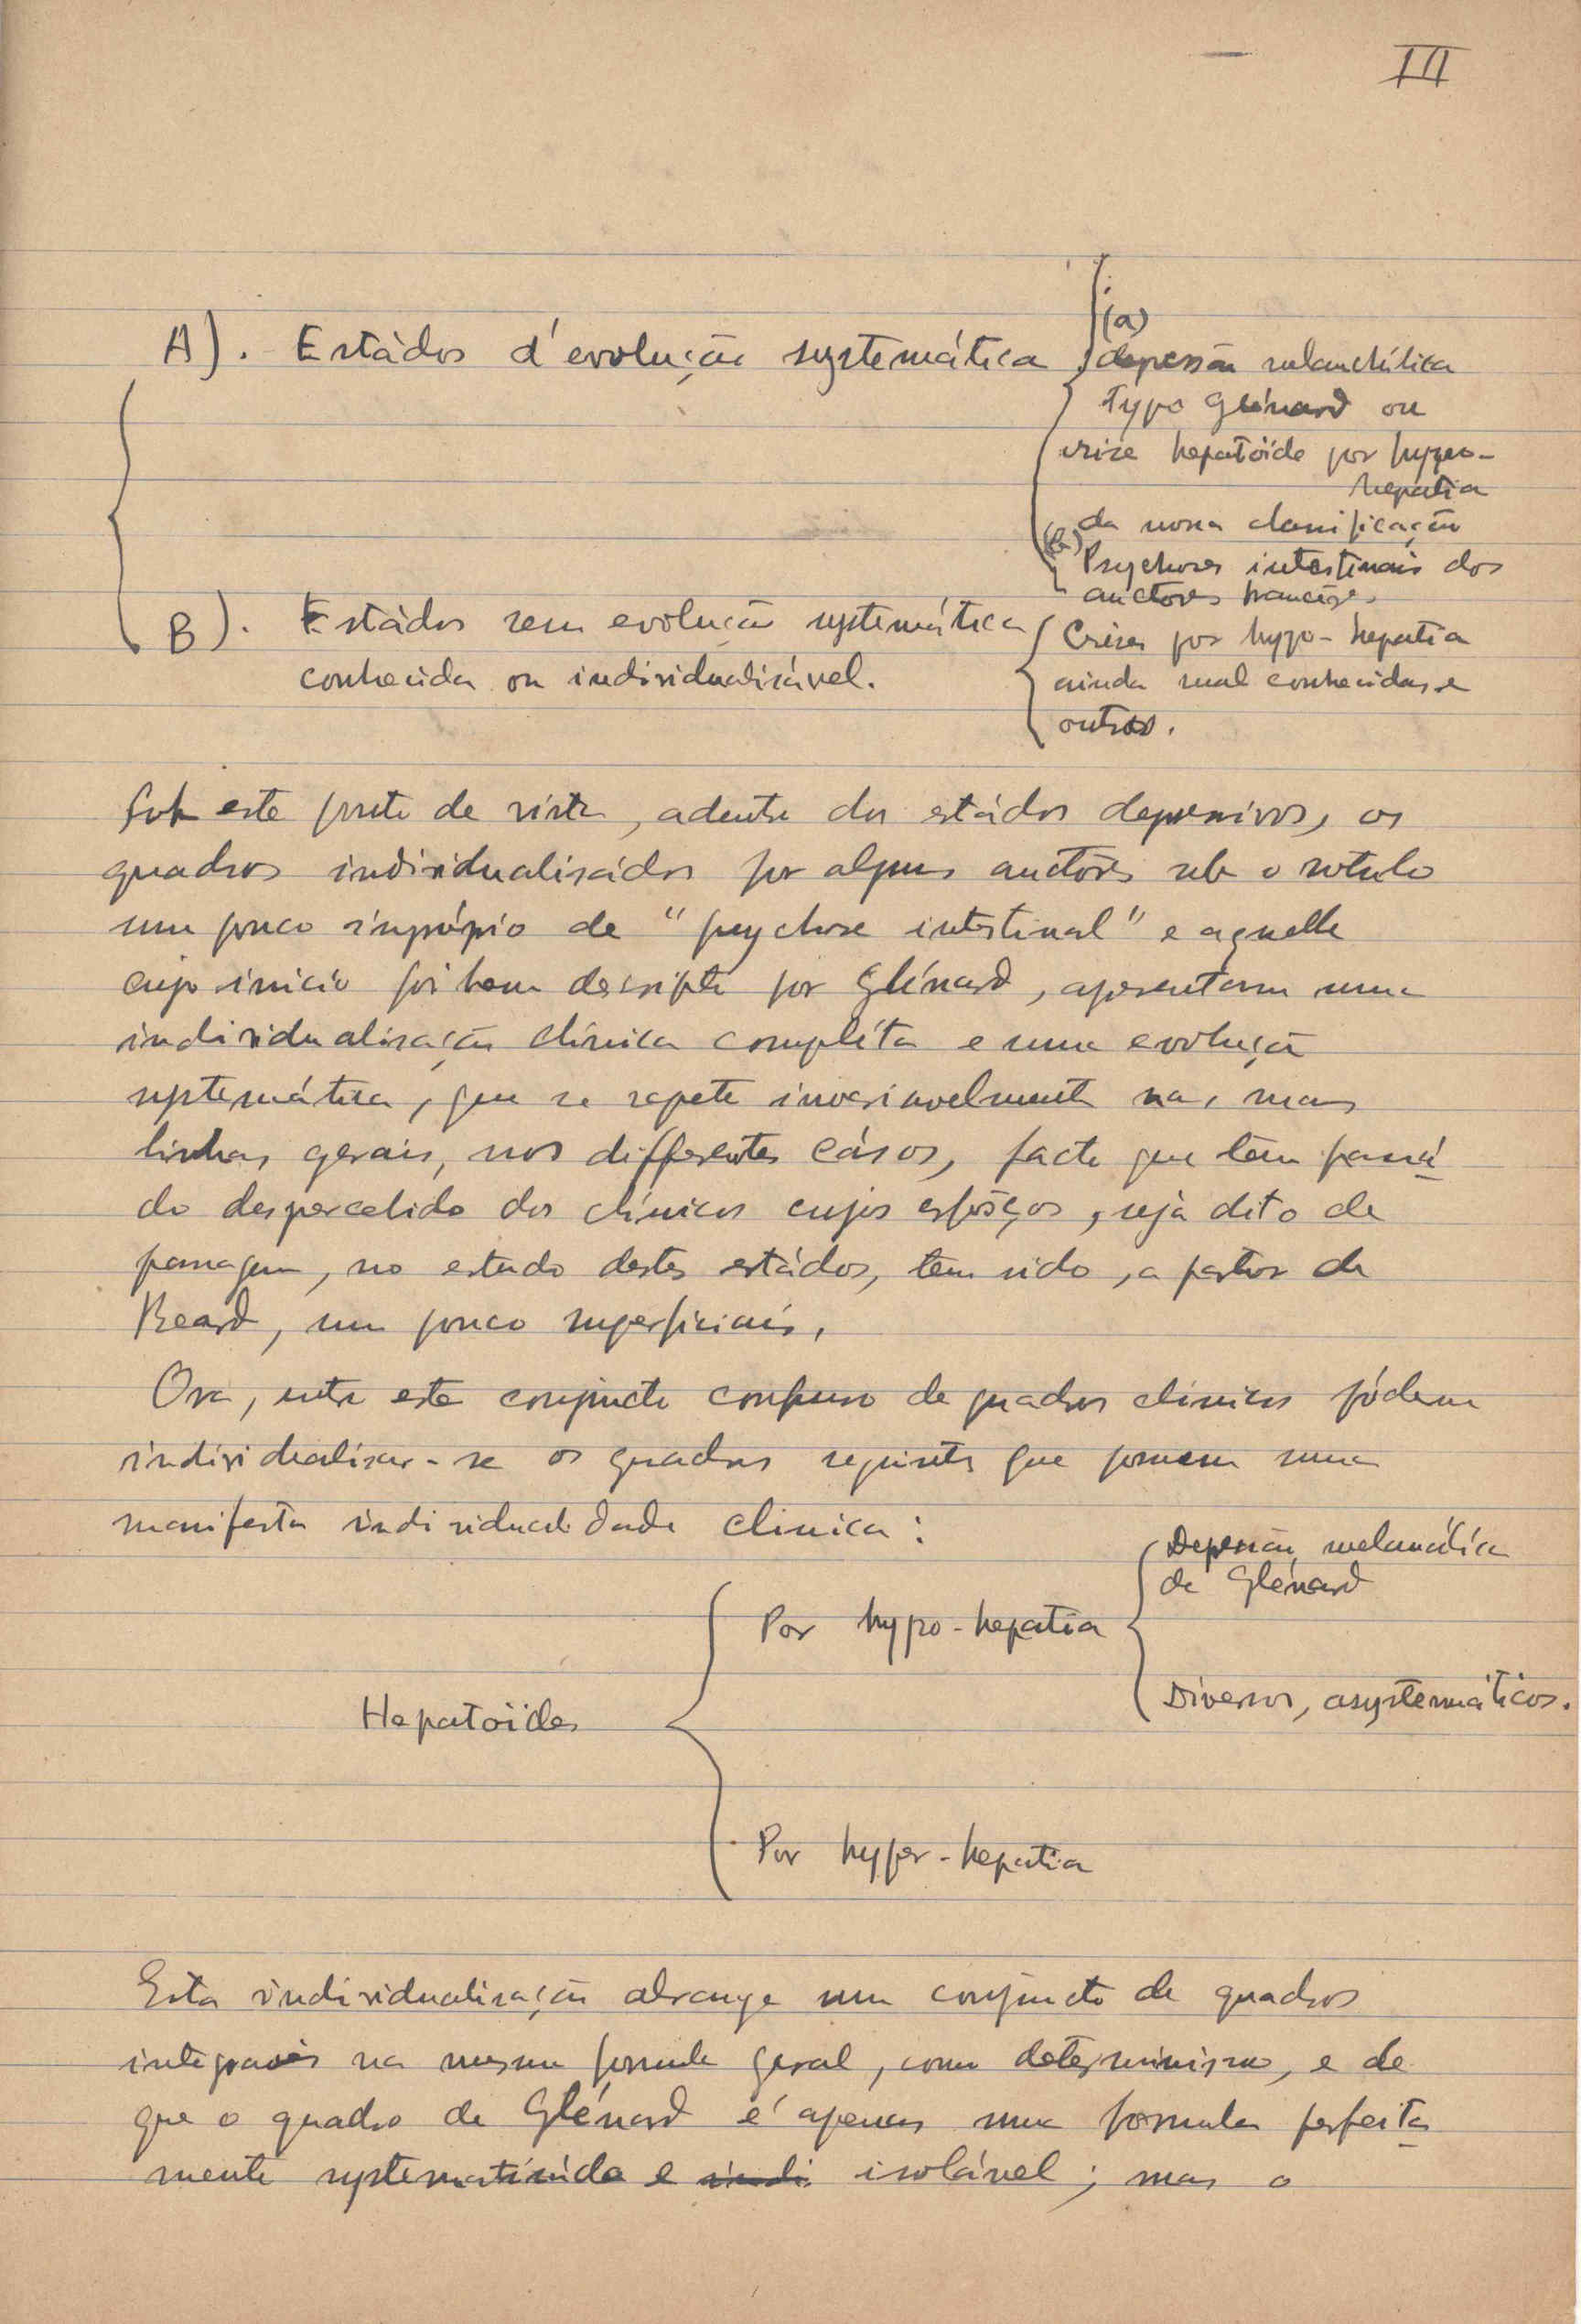 III
A). Estádos d'evolução systemática
(a)
depressão melanchólica
typo Glénard ou
crise hepatoïde por hypo-
hepatia
da nossa classificação
(b) Psychoses intestinais dos
auctores francêses
B). Estádos sem evolução systemática
conhecida ou individualisável.
Crises por hypo-hepatia
ainda mal conhecidas e
outros.
Sob este ponto de vista, adentro dos estádos depressivos, os
quadros individualisádos por alguns auctores sob o rotulo
um pouco impróprio de "psychose intestinal" e aquelle
cujo inicio foi bem descripto por Glénard, apresentam uma
individualisação clínica compléta e uma evolução
systemática, que se repete invariavelmente nas suas
linhas gerais, nos differentes cásos, facto que tem passá
do despercebido dos clínicos cujos esforços, seja dito de
passagem, no estudo destes estádos, tem sido, a partir de
Beard, um pouco superficiais.
Ora, entre este conjuncto confuso de quadros clínicos pódem
individualisar-se os quadros seguintes que possuem uma
manifesta individualidade clinica:
Hepatoïdes
Por hypo-hepatia
Depressão melancólica
de Glénard
Diversos, asystemáticos.
Por hyper-hepatia
Esta individualisação abrange um conjuncto de quadros
integraveis na mesma formula geral, como determinismo, e de
que o quadro de Glénard é apenas uma formula perfeita
mente systematisáda e indi isolável; mas o